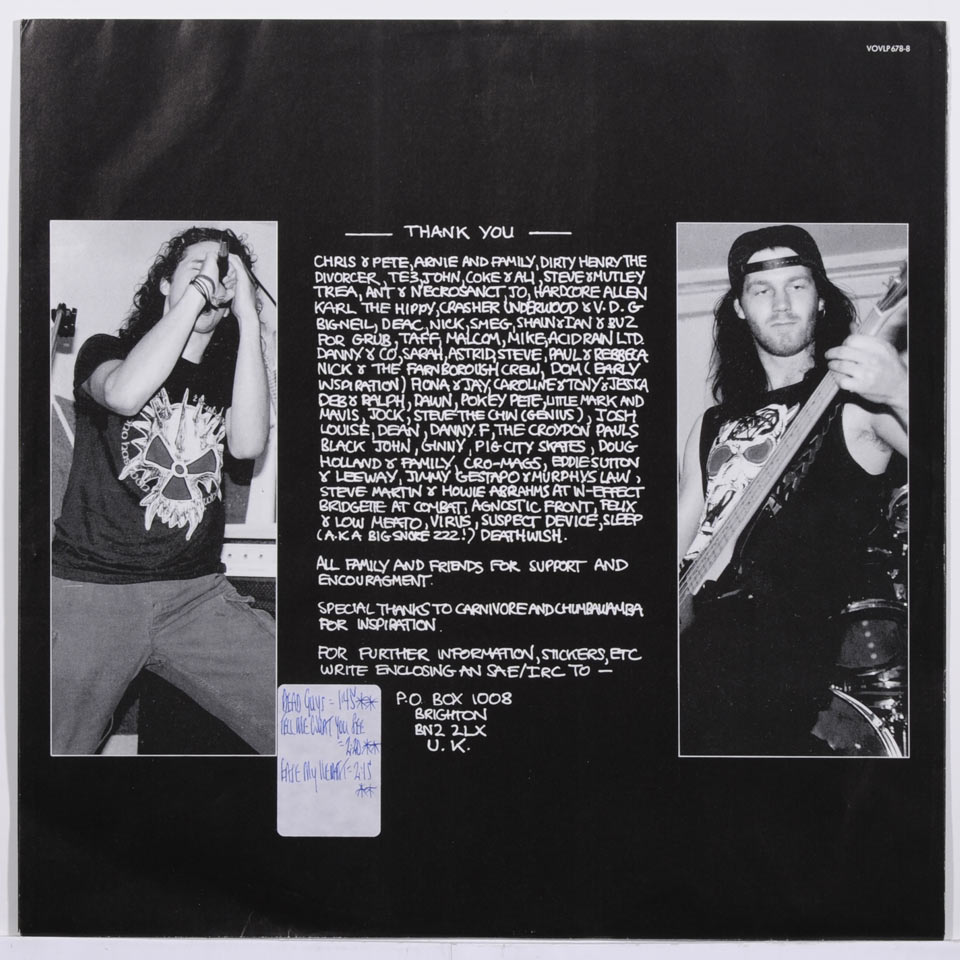 VOVLP678-8
THANK YOU
CHRIS & PETE, ARNIE AND FAMILY, DIRTY HENRY THE
DIVORCER, TE3, JOHN, COKE & ALI, STEVE & MUTLEY
TREA, ANT & NECROSANCT, JO, HARDCORE ALLEN
KARL THE HIPPY, CRASHER UNDERWOOD & V.D.G
BIG NEIL, DEAC, NICK, SMEG, SHAUN & IAN & BVZ
FOR GRUB, TAFF, MALCOM, MIKE, ACID RAIN LTD.
DANNY & CO, SARAH, ASTRID, STEVE, PAUL & REBBECA
NICK & THE FARNBOROUGH CREW, DOM (EARLY
INSPIRATION) FIONA & JAY, CAROLINE & TONY & JESSKA
DEB & RALPH, DAWN, POKEY PETE, LITTLE MARK AND
MAVIS, JOCK, STEVE THE CHIN (GENIUS), JOSH
LOUISE, DEAN, DANNY.F, THE CROYDON PAULS
BLACK JOHN, GINNY, PIG CITY SKATES, DOUG
HOLLAND & FAMILY, CRO-MAGS, EDDIE SUTTON
& LEEWAY, JIMMY GESTAPO & MURPHYS LAW,
STEVE MARTIN & HOWIE ABRAHMS AT IN-EFFECT
BRIDGETTE AT COMBAT, AGNOSTIC FRONT, FELIX
& LOW MEATO, VIRUS, SUSPECT DEVICE, SLEEP
(A.K.A BIG SNORE ZZZ!) DEATHWISH.
ALL FAMILY AND FRIENDS FOR SUPPORT AND
ENCOURAGMENT.
SPECIAL THANKS TO CARNIVORE AND CHUMBAWAMBA
FOR INSPIRATION.
FOR FURTHER INFORMATION, STICKERS, ETC
WRITE ENCLOSING AN SAE/IRC TO —
P.O. BOX 1008
BRIGHTON
BN2 2LX
U.K.
DEAD GUYS = 1.45**
TELL ME WHAT YOU SEE
= 2.20**
EASE MY HEART = 2.15
**